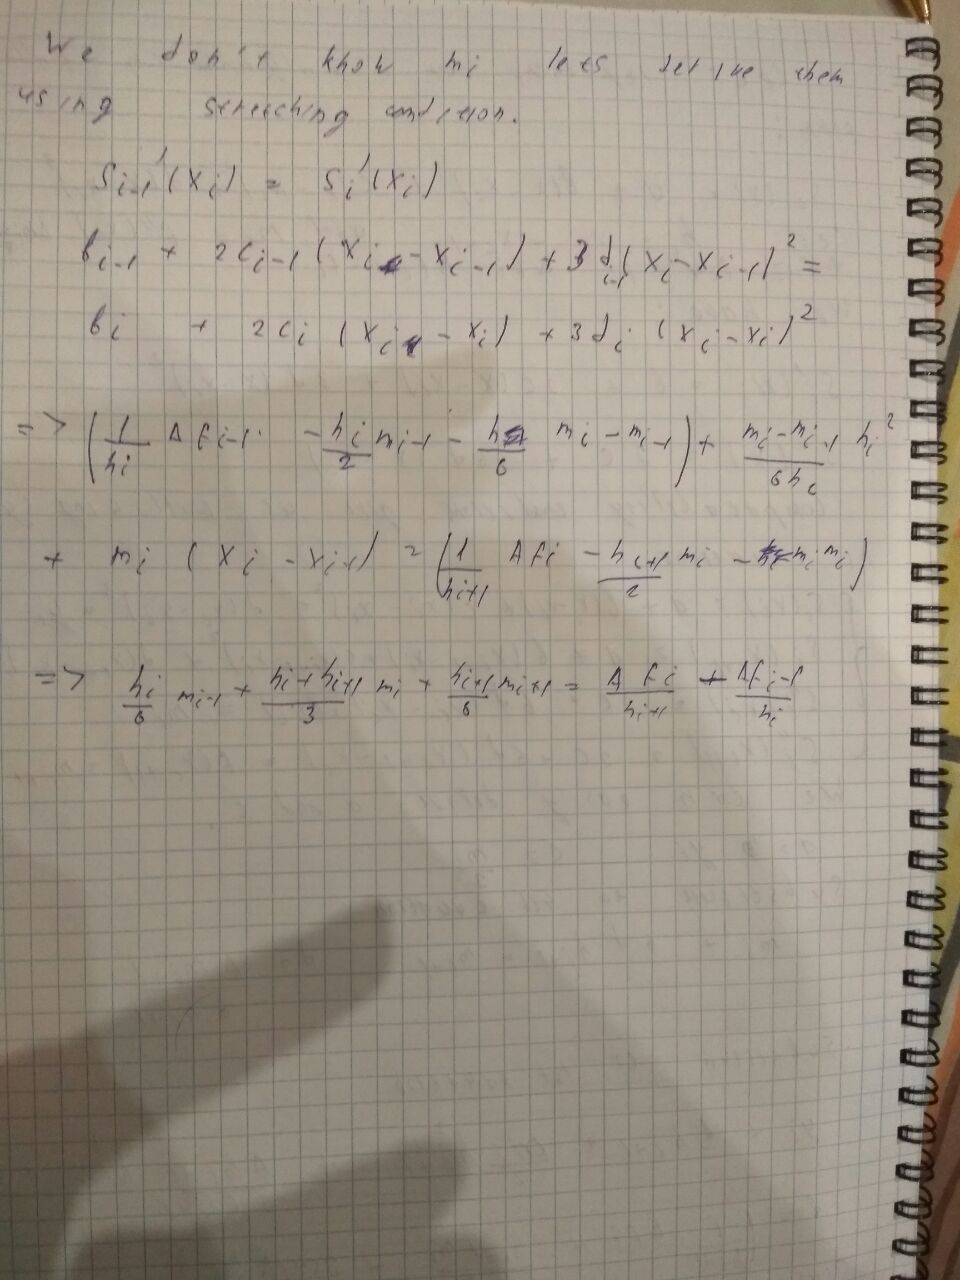 We don't know mi lets derive them
using stretching condition.
S'i-1(Xi) = S'i(Xi)
bi-1 + 2ci-1 (Xi - Xi-1) + 3di-1(Xi - Xi-1)² =
bi + 2ci (Xi - Xi) + 3di (Xi - Xi)²
=> (1/hi Δfi-1 - hi/2 mi-1 - h/6 mi - mi-1) + (mi - mi-1)/(6hi) hi²
+ mi (Xi - Xi-1) = (1/hi+1 Δfi - hi+1/2 mi - mi mi)
=> hi/6 mi-1 + (hi + hi+1)/3 mi + hi+1/6 mi+1 = Δfi/hi+1 + Δfi-1/hi